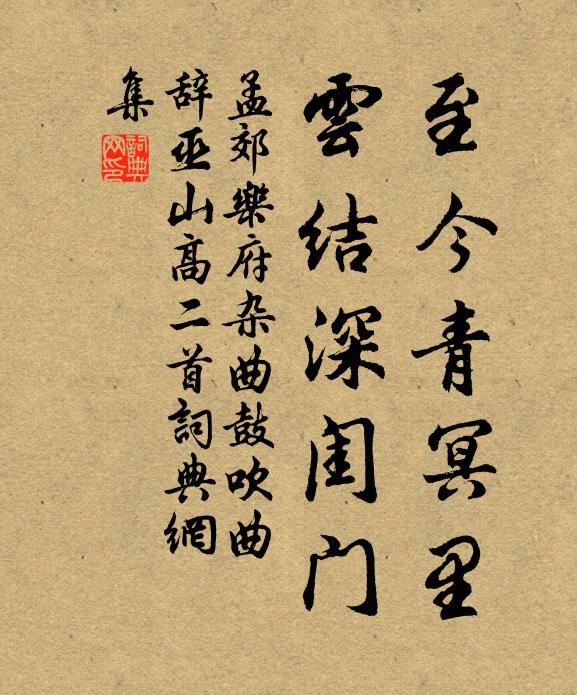 至今青冥里
雲结深闺门
孟郊樂府杂曲鼓吹曲
辞巫山高二首詞典網
集
詞典
网印